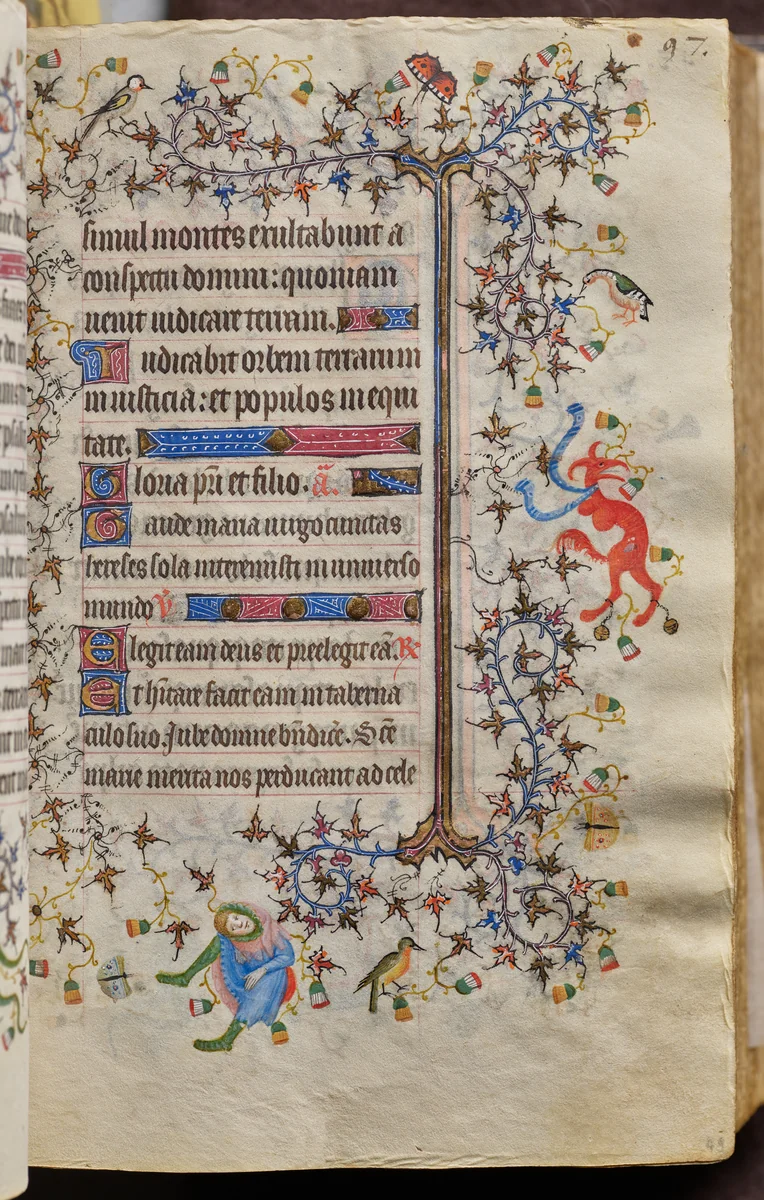 97.
simul montes exultabunt a
conspectu domini: quoniam
uenit iudicare terram.
Iudicabit orbem terrarum
in iusticia: et populos in equi
tate.
Gloria pri et filio. a.
Gaude maria uirgo cunctas
hereses sola interemisti in uniuerso
mundo V
Elegit eam deus et preelegit ea. R
Et hitare facit eam in taberna
culo suo. Iube domne bndice. Sce
marie merita nos perducant ad cele